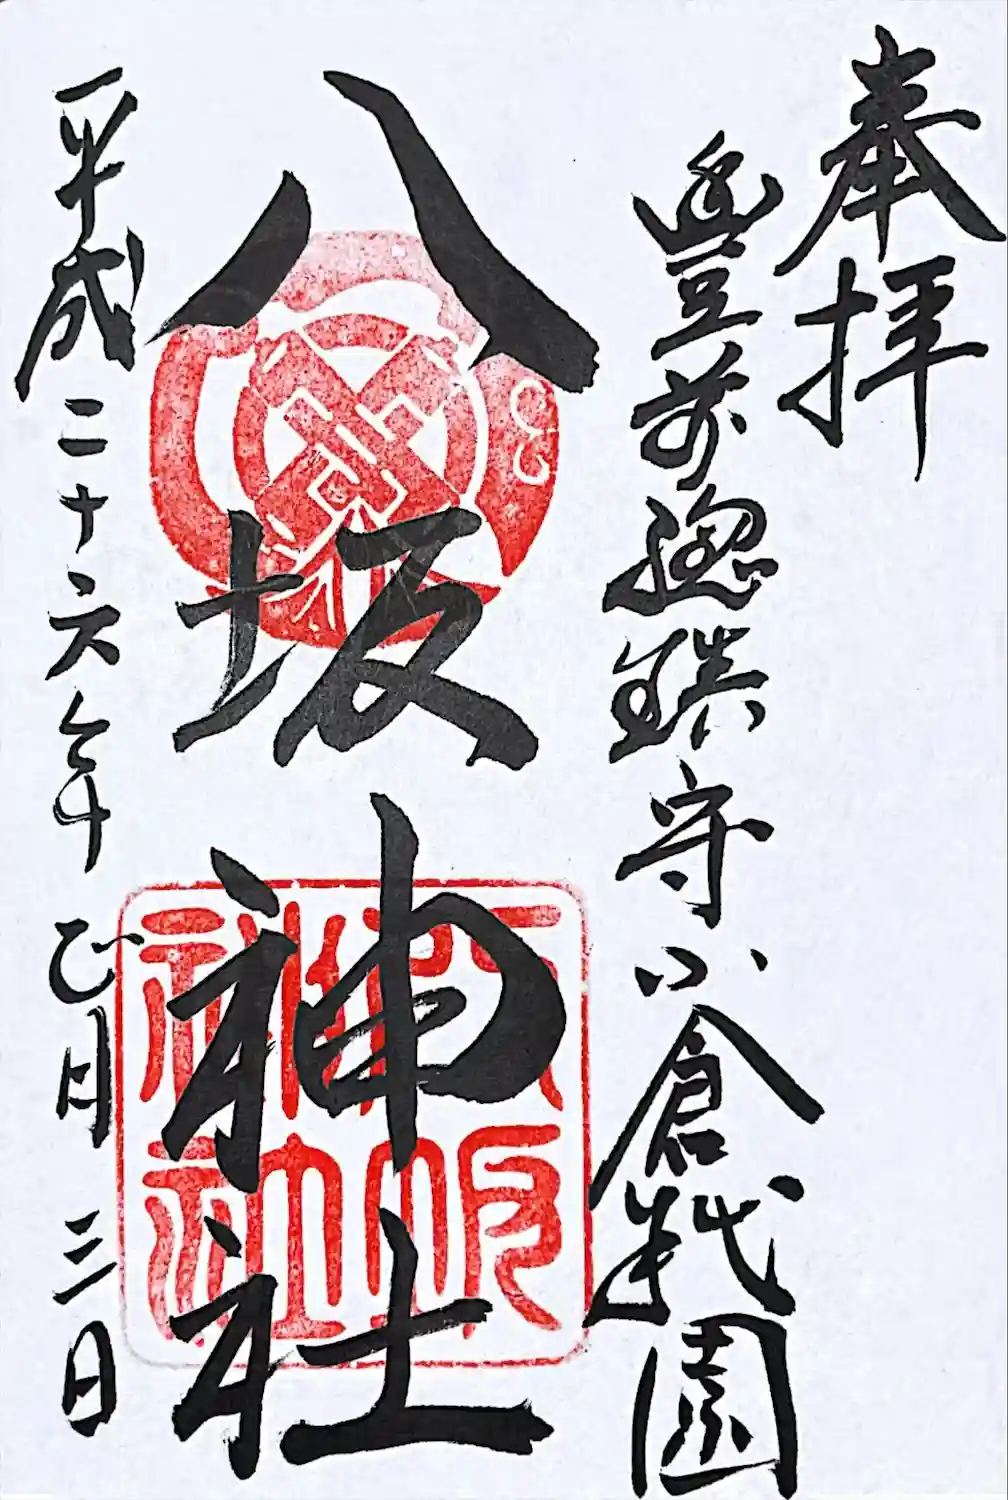 奉拝
豊前惣鎮守小倉祇園
八坂神社
八坂神社
平成二十六年七月三日